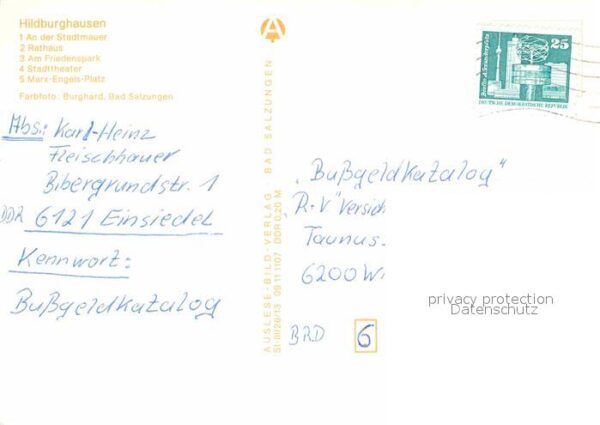 Hildburghausen
1 An der Stadtmauer
2 Rathaus
3 Am Friedenspark
4 Stadttheater
5 Marx-Engels-Platz
Farbfoto: Burghard, Bad Salzungen
Abs.: Karl-Heinz
Fleischhauer
Bibergrundstr. 1
DDR 6121 Einsiedel
Kennwort:
Bußgeldkatalog
AUSLESE-BILD-VERLAG BAD SALZUNGEN
St III/26/13 09 11 1107 DDR 0,20 M
25
Berlin-Alexanderplatz
DEUTSCHE DEMOKRATISCHE REPUBLIK
„Bußgeldkatalog"
„R+V" Versich
Taunus
6200 W
BRD 6
privacy protection
Datenschutz